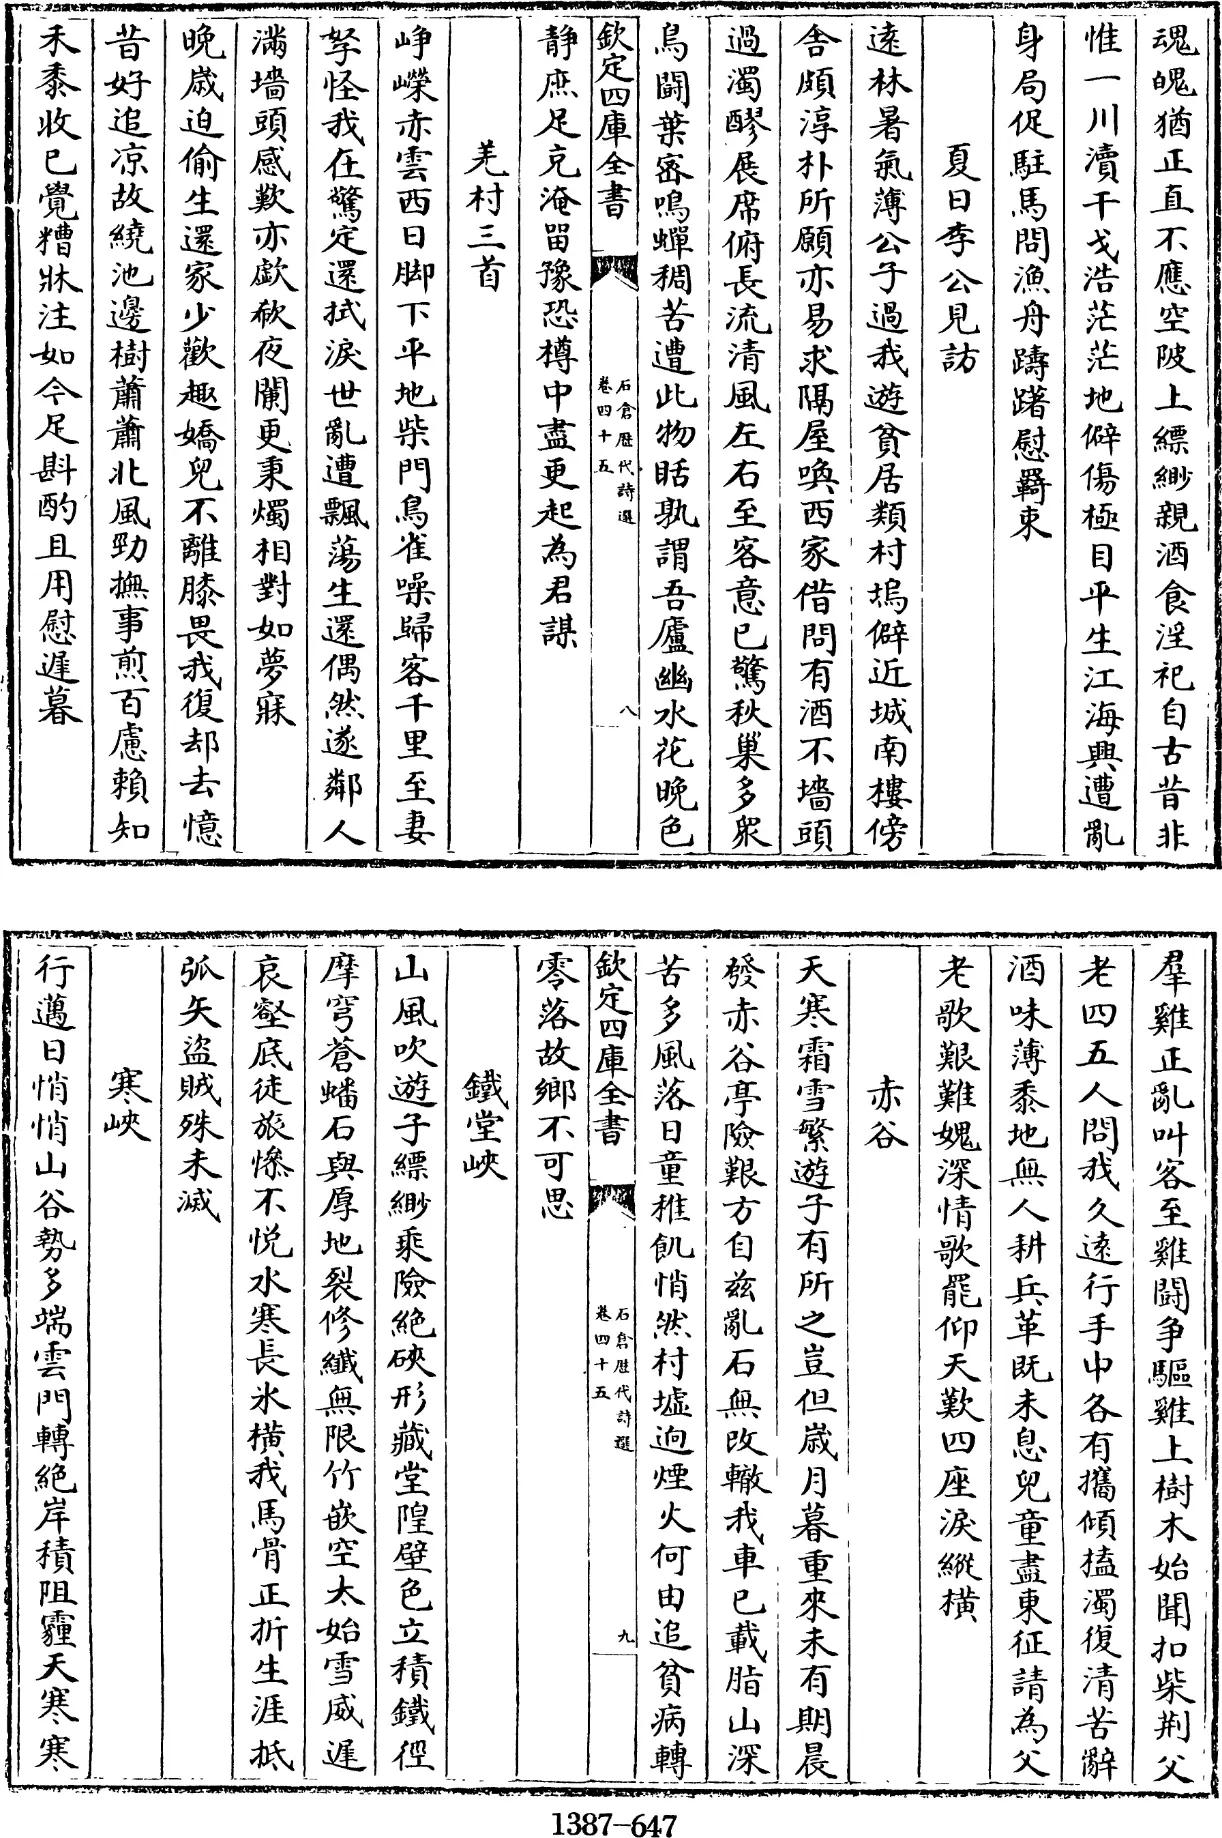 魂魄猶正直不應空陂上縹緲親酒食淫祀自古昔非
惟一川瀆干戈浩茫茫地僻傷極目平生江海興遭亂
身局促駐馬問漁舟躊躇慰羈束
夏日李公見訪
遠林暑氣薄公子過我遊貧居類村塢僻近城南樓傍
舍頗淳朴所願亦易求隔屋喚西家借問有酒不墻頭
過濁醪展席俯長流清風左右至客意已驚秋巢多衆
鳥鬭葉宻鳴蟬稠苦遭此物聒孰謂吾廬幽水花晚色
靜庶足充淹留豫恐樽中盡更起為君謀
羌村三首
崢嶸赤雲西日脚下平地柴門鳥雀噪歸客千里至妻
孥怪我在驚定還拭淚世亂遭飄蕩生還偶然遂鄰人
滿墻頭感歎亦歔欷夜闌更秉燭相對如夢寐
晚歲迫偷生還家少歡趣嬌兒不離膝畏我復却去憶
昔好追凉故繞池邊樹蕭蕭北風勁撫事煎百慮賴知
禾黍收已覺糟牀注如今足斟酌且用慰遲暮
欽定四庫全書
石倉歷代詩選
卷四十五
八
羣雞正亂叫客至雞鬭爭驅雞上樹木始聞扣柴荆父
老四五人問我久遠行手中各有攜傾榼濁復清苦辭
酒味薄黍地無人耕兵革既未息兒童盡東征請為父
老歌艱難媿深情歌罷仰天歎四座淚縱橫
赤谷
天寒霜雪繁遊子有所之豈但歲月暮重來未有期晨
發赤谷亭險艱方自兹亂石無改轍我車已載脂山深
苦多風落日童稚飢悄然村墟逈煙火何由追貧病轉
零落故鄉不可思
鐵堂峽
山風吹遊子縹緲乘險絕硤形藏堂隍壁色立積鐵徑
摩穹蒼蟠石與厚地裂修纖無限竹嵌空太始雪威遲
哀壑底徒旅慘不悅水寒長氷橫我馬骨正折生涯抵
弧矢盜賊殊未滅
寒峽
行邁日悄悄山谷勢多端雲門轉絕岸積阻霾天寒寒
欽定四庫全書
石倉歷代詩選
卷四十五
九
1387-647